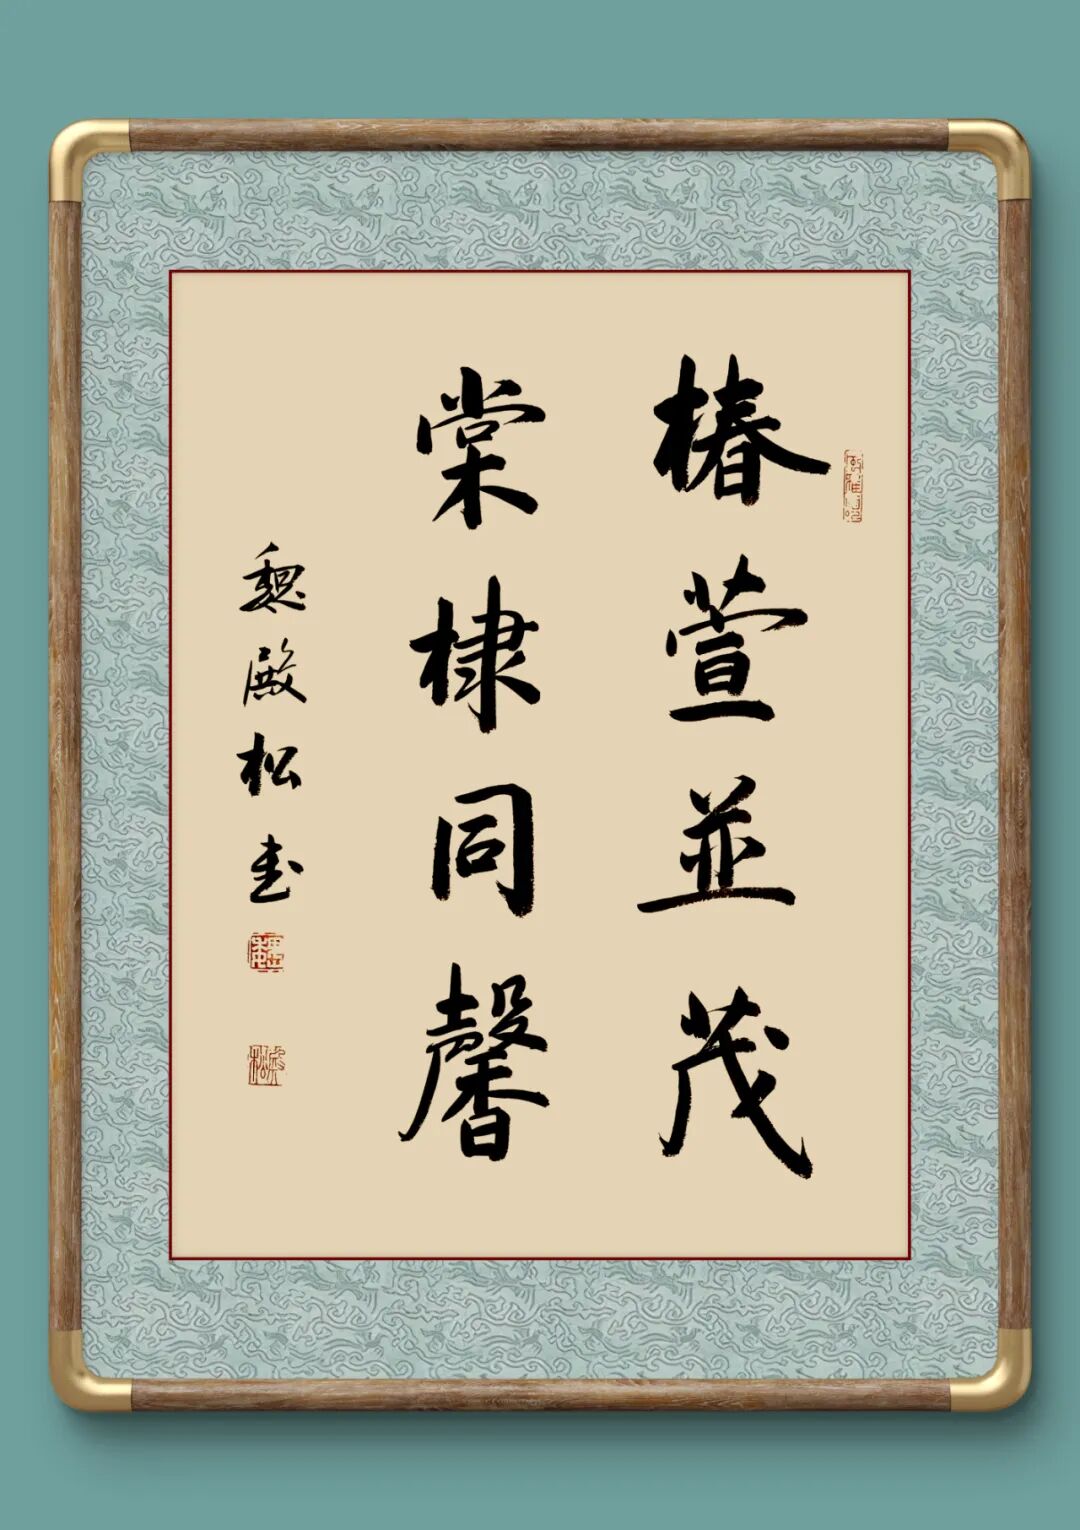 椿萱並茂
棠棣同馨
魏殿松书